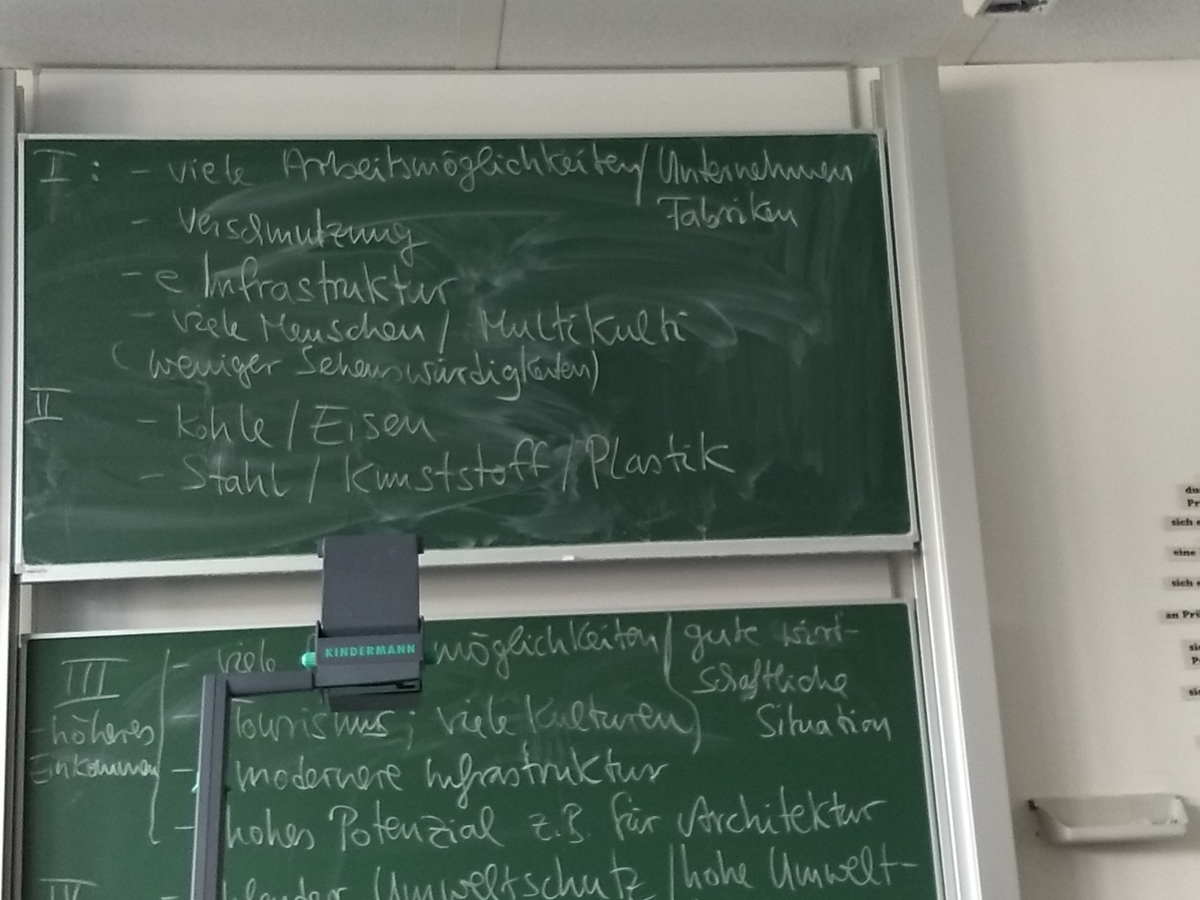 I : - viele Arbeitsmöglichkeiten/ Unternehmen
Fabriken
- Verschmutzung
- e Infrastruktur
- viele Menschen / Multikulti
(weniger Sehenswürdigkeiten)
II - Kohle / Eisen
- Stahl / Kunststoff / Plastik
KINDERMANN
III - viele möglichkeiten / gute wirt-
schaftliche
Situation
- Tourismus ; viele Kulturen
- höheres
Einkommen
- modernere Infrastruktur
- hohes Potenzial z.B. für Architektur
IV Umweltschutz / hohe Umwelt-
eine
an Prü